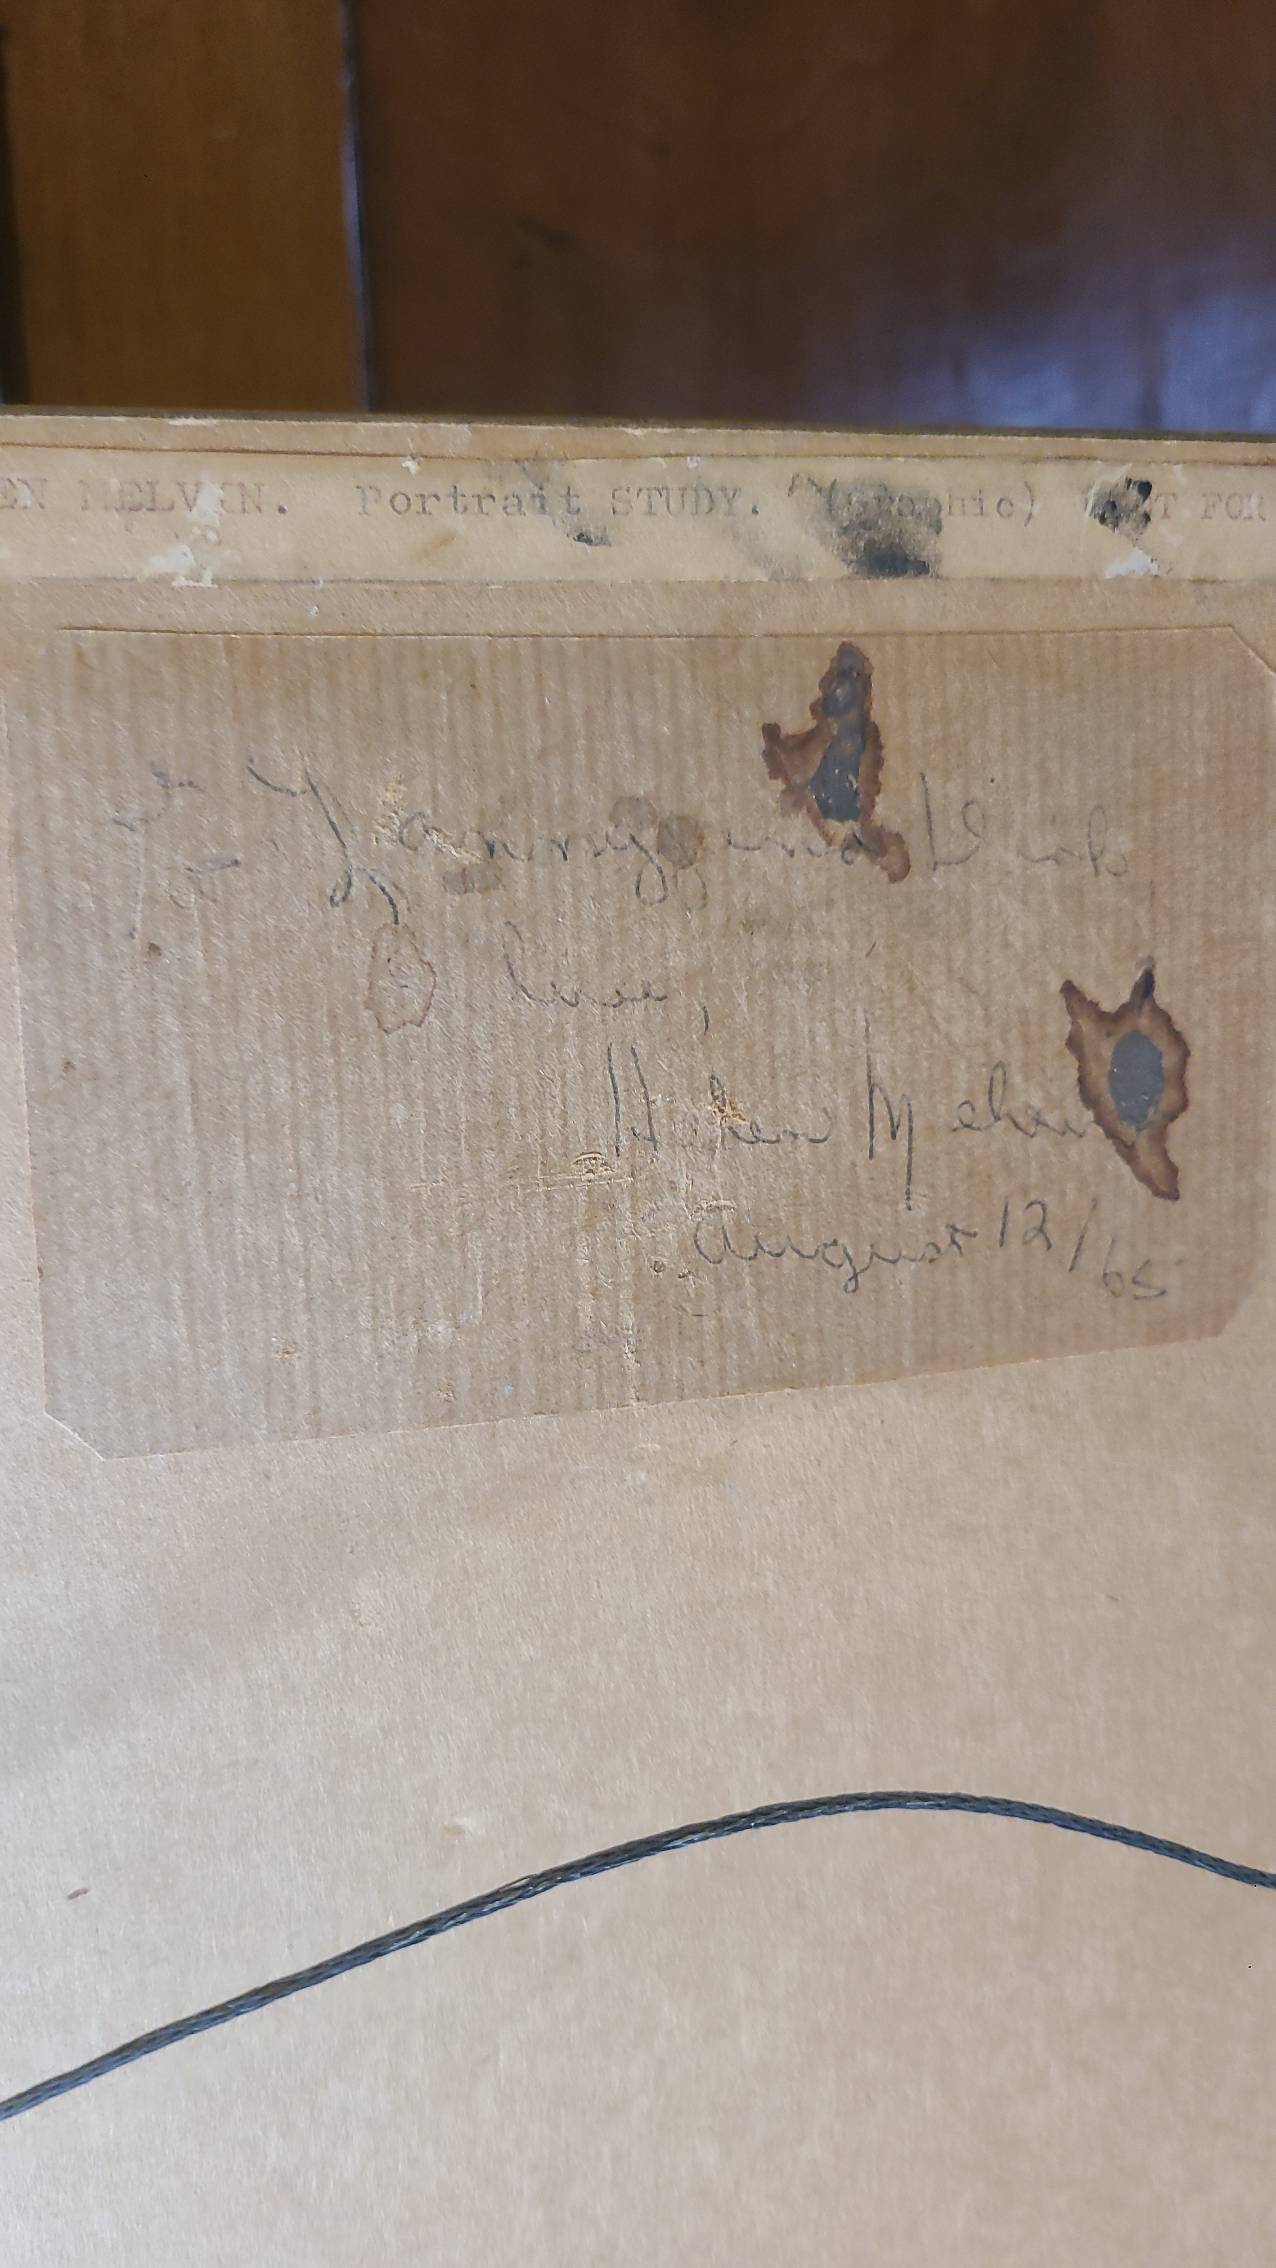 EN MELVIN. Portrait STUDY. (Graphic) FOR
To Yanny and Dick
love,
Helen Melvin
August 12/65